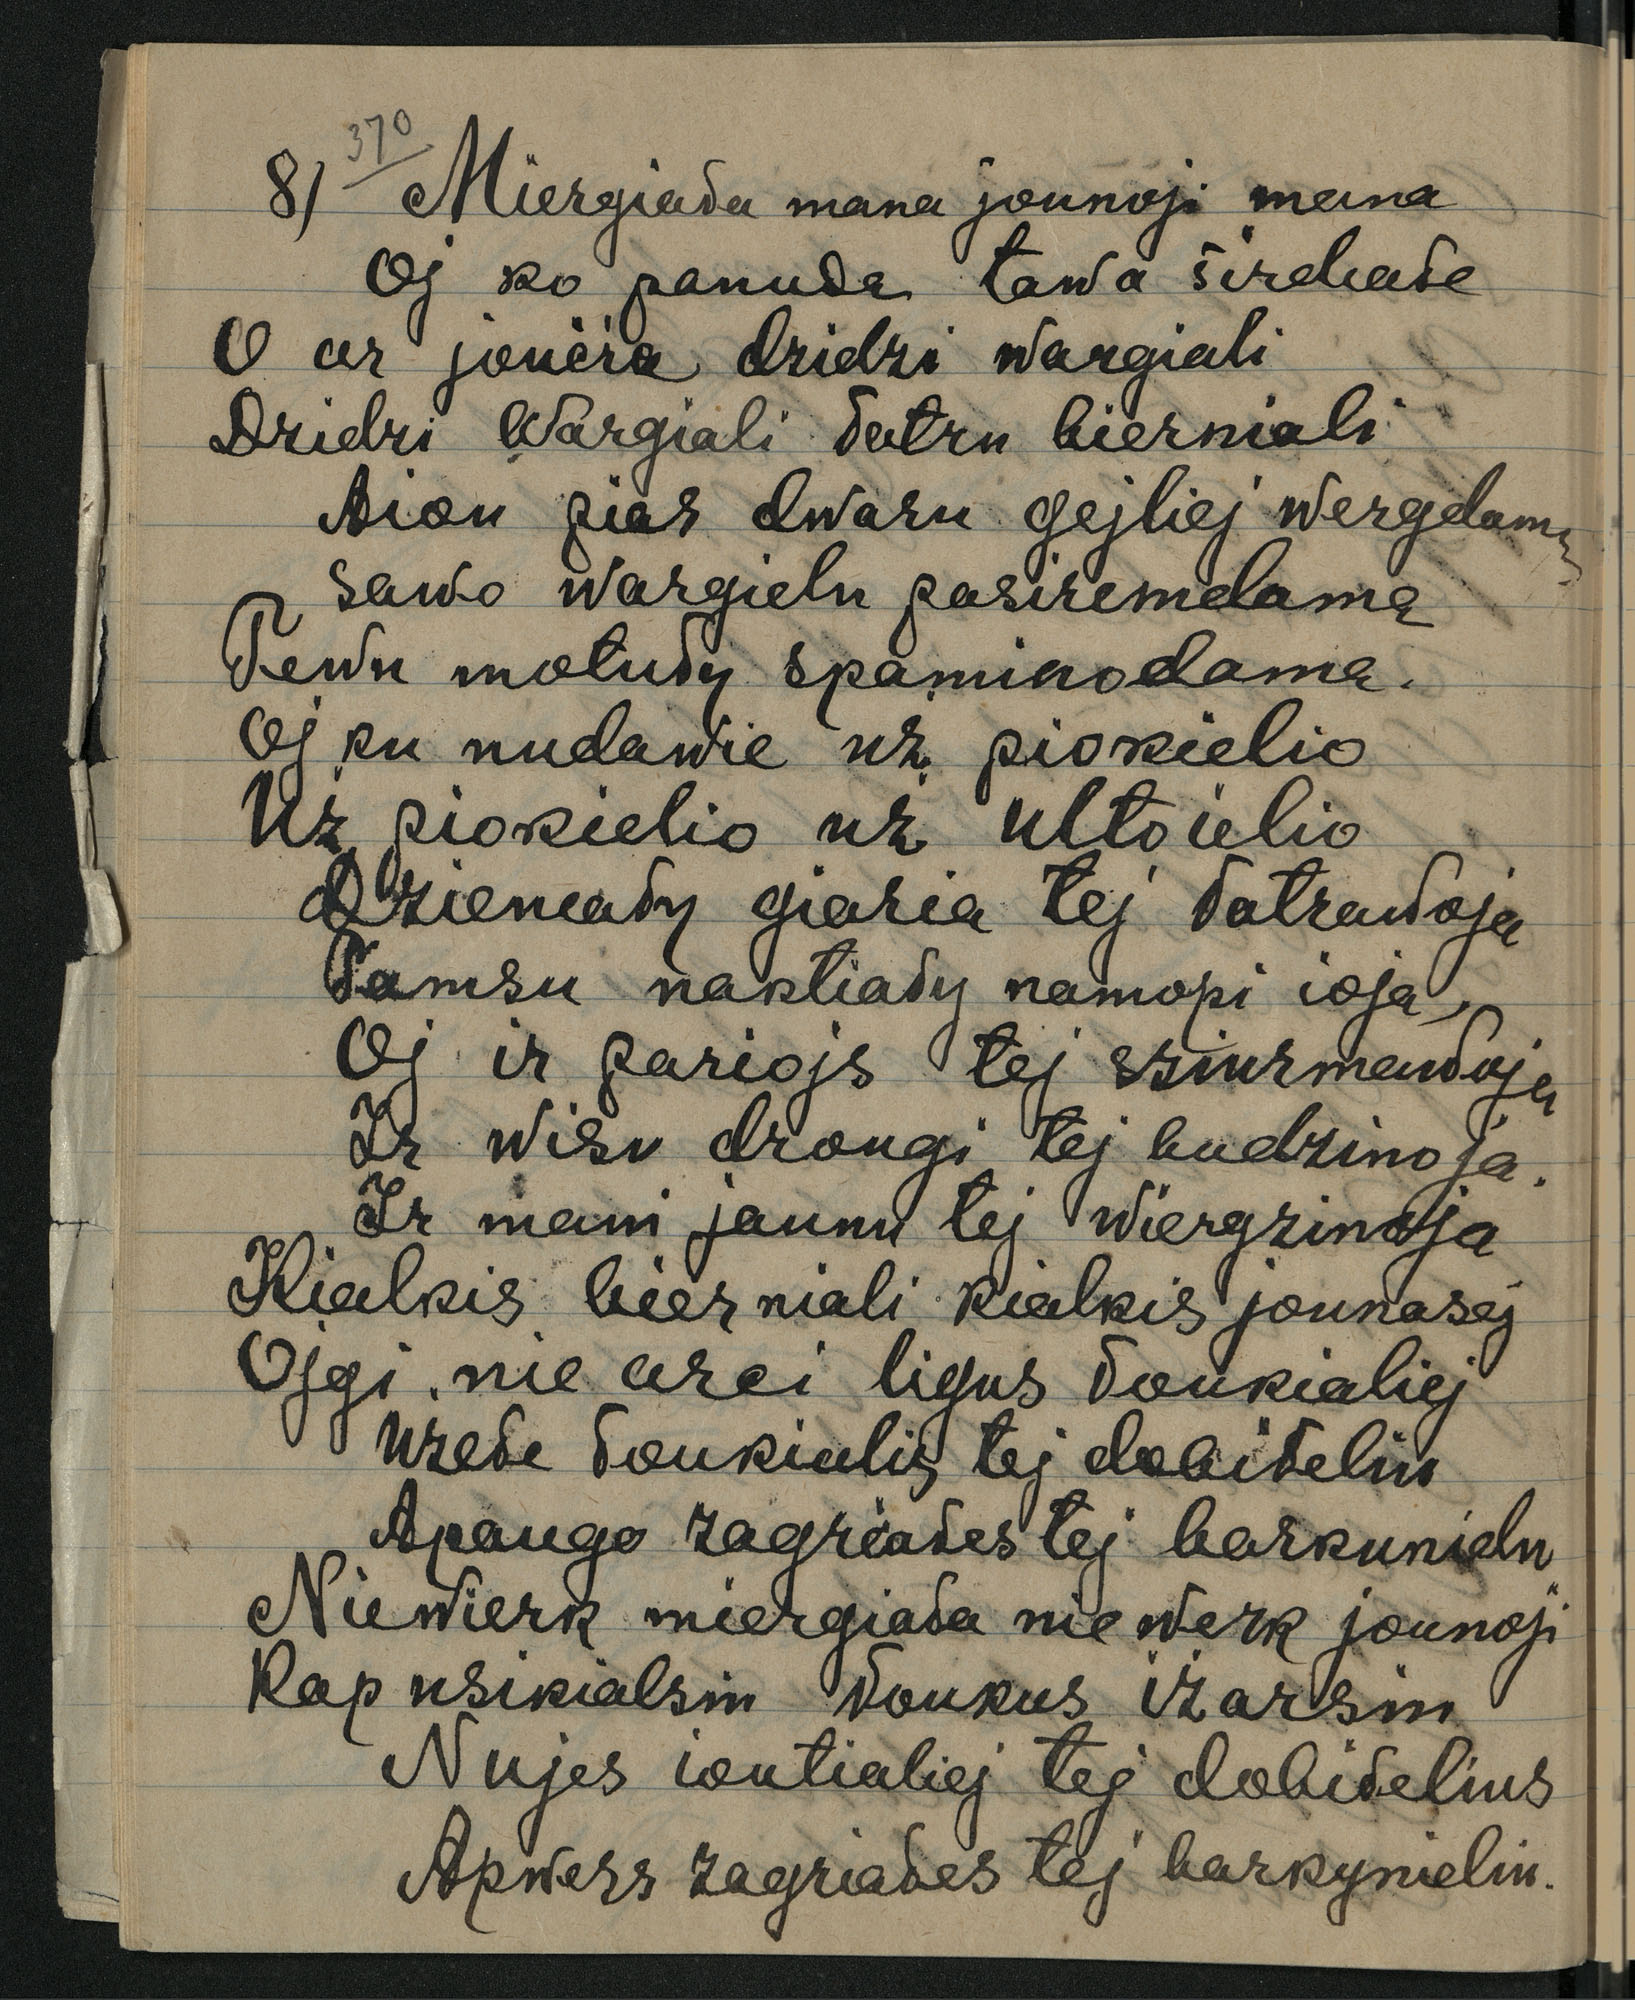 370
8) Miergiała mana jounoji mana
Oj ko panuda tawa širdiałe
O ar jouëra dzidzi wargiali
Dzidzi wargiali łatru bierniali
Aiou pias dwaru gejliej wergdama
sawo wargielu pasiremdama
Tewu motuły spaminodama.
Oj ku nudawie už piokielio
Už piokielio už ultoielio
Dzieniały giaria tej łatrawoja
Tamsu naktiały namopi ioja,
Oj ir pariojs tej sziurmawoja
Ir wisu drougi tej budzinoja.
Ir mani jaunu tej wiergzinoja
Kialkis bierniali kialkis jounasej
Ojgi nie arci ligus łoukialiej
Użełe łoukialis tej dobiłeliu
Apaugo zagriałes tej barkunielu
Niewierk miergiała niewerk jounoji
Kap usikialsim łoukus iżarsim
Nujes ioutialiej tej dobiłelius
Apwers zagriałes tej barkynieliu.